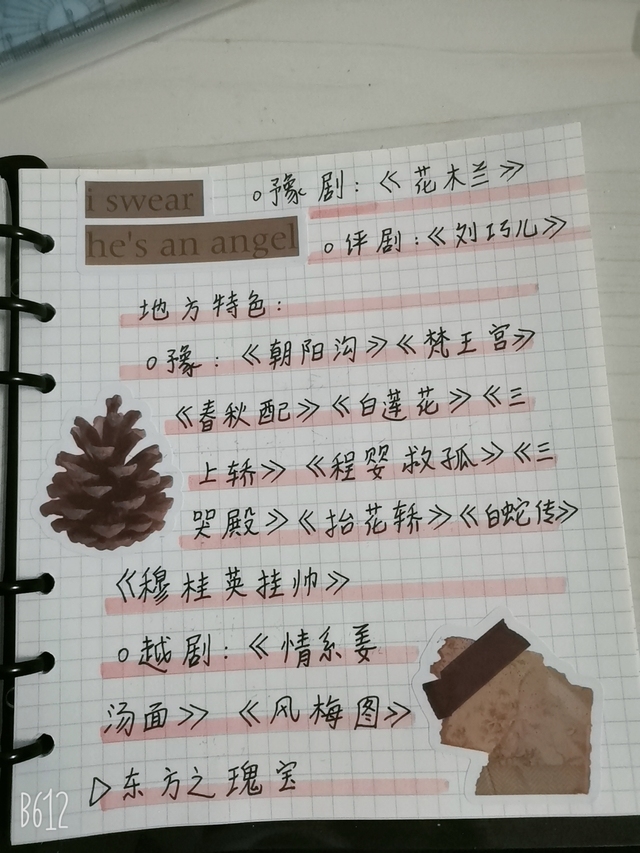 i swear
he's an angel
○豫剧：《花木兰》
○评剧：《刘巧儿》
地方特色：
○豫：《朝阳沟》《梵王宫》
《春秋配》《白莲花》《三
上轿》《程婴救孤》《三
哭殿》《抬花轿》《白蛇传》
《穆桂英挂帅》
○越剧：《情系姜
汤面》《风梅图》
▷东方之瑰宝
B612